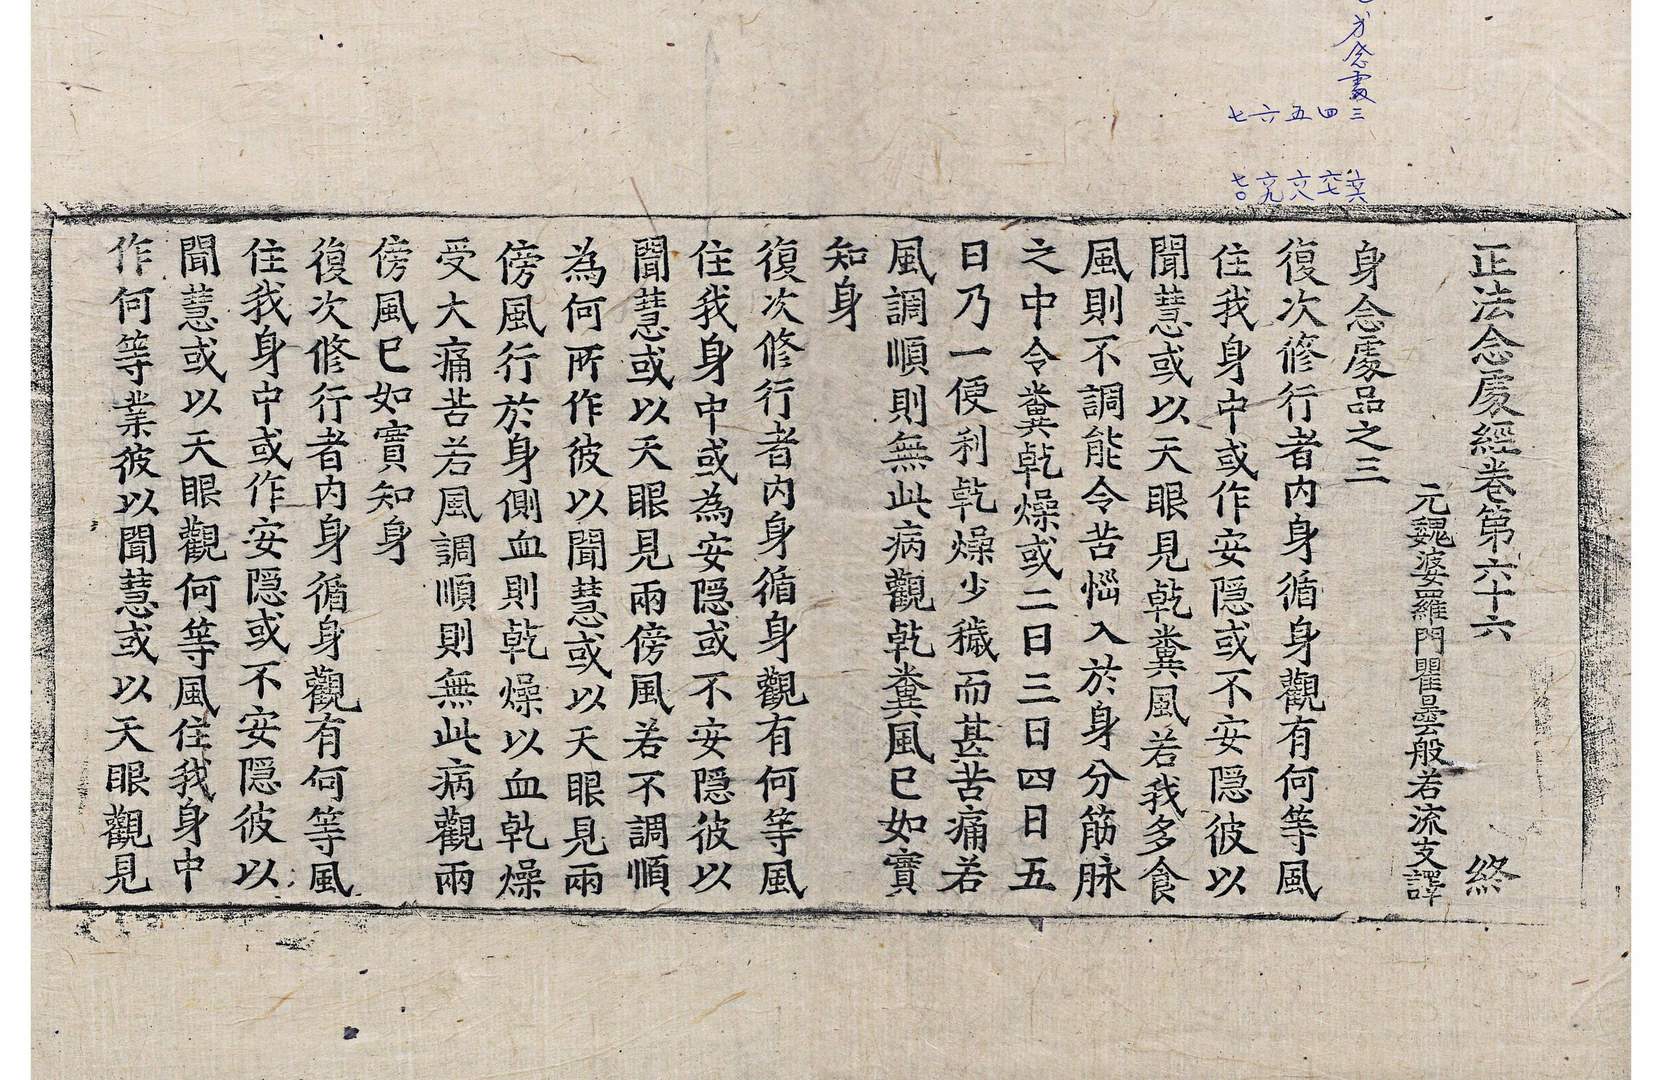 身念處三
三四五六七
六六 六七 六八 六九 七〇
正法念處經卷第六十六 終
元魏婆羅門瞿曇般若流支譯
身念處品之三
復次修行者內身循身觀有何等風
住我身中或作安隱或不安隱彼以
聞慧或以天眼見乾糞風若我多食
風則不調能令苦惱入於身分筋脉
之中令糞乾燥或二日三日四日五
日乃一便利乾燥少穢而甚苦痛若
風調順則無此病觀乾糞風已如實
知身
復次修行者內身循身觀有何等風
住我身中或為安隱或不安隱彼以
聞慧或以天眼見兩傍風若不調順
為何所作彼以聞慧或以天眼見兩
傍風行於身側血則乾燥以血乾燥
受大痛苦若風調順則無此病觀兩
傍風已如實知身
復次修行者內身循身觀有何等風
住我身中或作安隱或不安隱彼以
聞慧或以天眼觀何等風住我身中
作何等業彼以聞慧或以天眼觀見